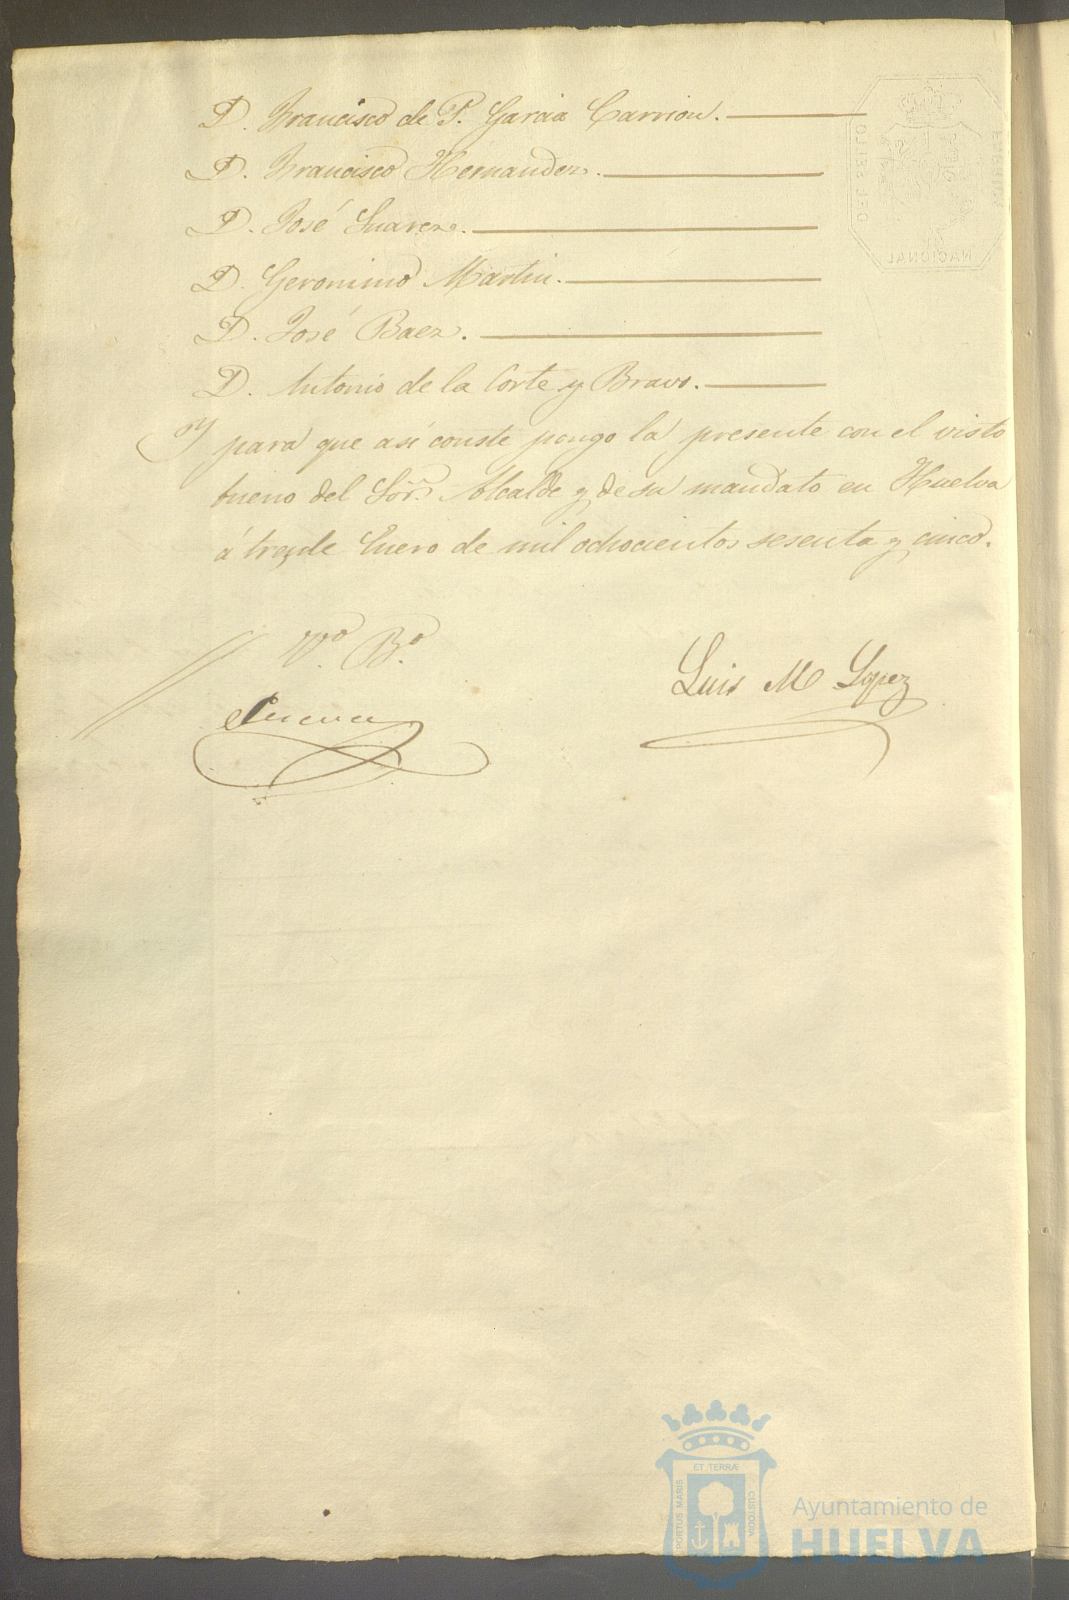 D. Francisco de P. Garcia Carrion.
D. Francisco Hernandez.
D. José Suarez.
D. Geronimo Martin.
D. José Baez.
D. Antonio de la Corte y Bravo.
Y para que asi conste pongo la presente con el visto
bueno del Sõr. Alcalde y de su mandato en Huelva
á trece de Enero de mil ochocientos sesenta y cinco.
Vº. Bº.
Luis M Lopez
DEL SELLO
NACIONAL
ET TERRÆ
PORTUS MARIS
CUSTODIA
Ayuntamiento de
HUELVA